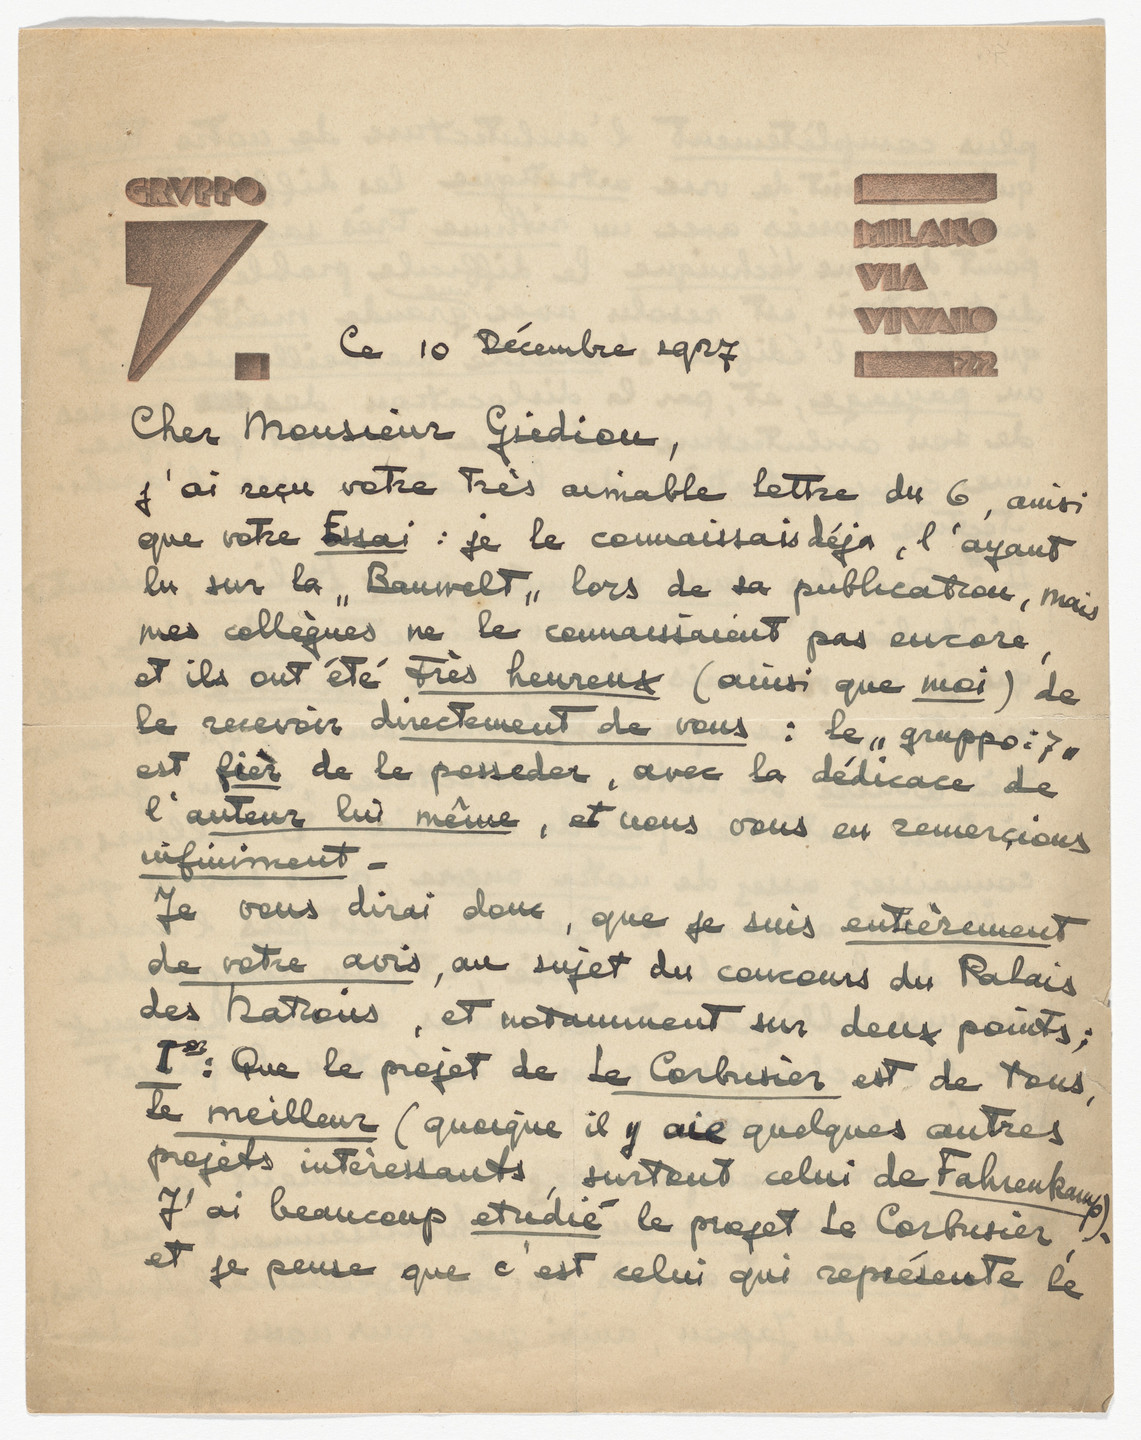 GRVPPO
7.
MILANO
VIA
VIVAIO
22
Ce 10 Décembre 1927
Cher Monsieur Giedion,
j'ai reçu votre très aimable lettre du 6, ainsi
que votre Essai : je le connaissais déja, l'ayant
lu sur la „Bauwelt„ lors de sa publication, mais
mes collègues ne le connaissaient pas encore,
et ils ont été très heureux (ainsi que moi) de
le recevoir directement de vous : le „gruppo: 7„
est fier de le posseder, avec la dédicace de
l'auteur lui même, et nous vous en remerçions
infiniment -
Je vous dirai donc, que je suis entièrement
de votre avis, au sujet du concours du Palais
des Nations, et notamment sur deux points;
Ier: Que le projet de Le Corbusier est de tous,
le meilleur (quoique il y aie quelques autres
projets intéressants, surtout celui de Fahrenkamp).
J'ai beaucoup etudié le projet Le Corbusier,
et je pense que c'est celui qui représente le